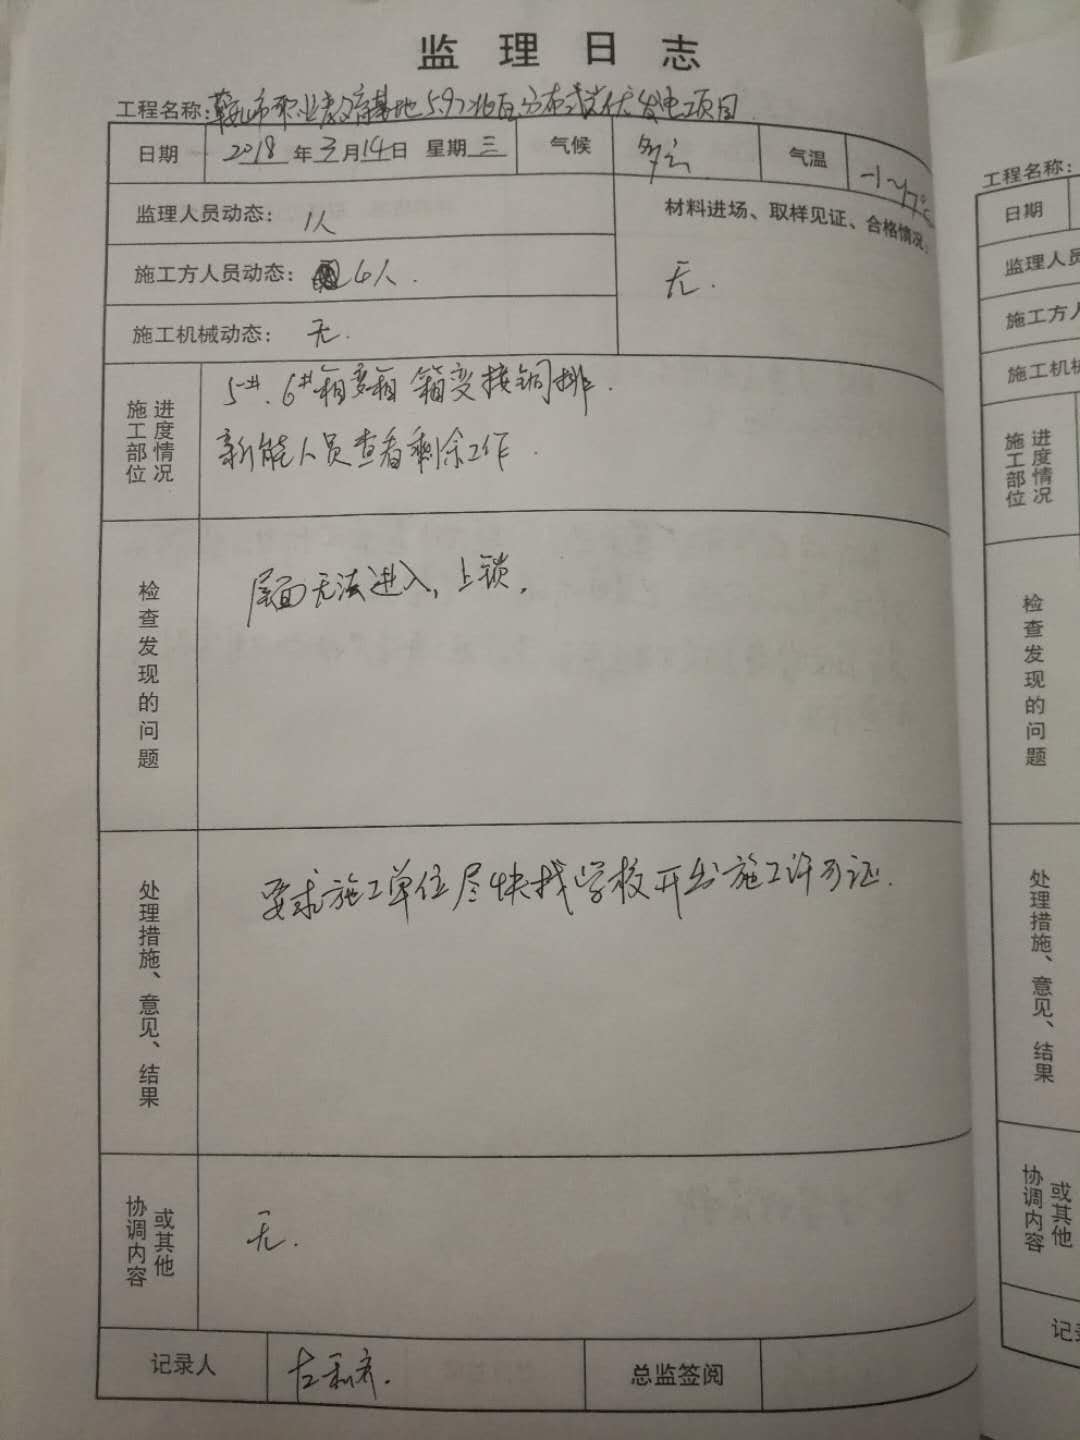 监理日志
工程名称:鞍山市职业教育基地5.97兆瓦分布式光伏发电项目
日期 2018年3月14日 星期三 气候 多云 气温 -1~17℃
监理人员动态: 1人
材料进场、取样见证、合格情况:
无.
施工方人员动态: 6人.
施工机械动态: 无.
施工部位进度情况
5#、6#箱变箱 箱变接铜排.
新能人员查看剩余工作.
检查发现的问题
屋面无法进入,上锁.
处理措施、意见、结果
要求施工单位尽快找学校开出施工许可证.
协调内容或其他
无.
记录人
总监签阅
工程名称:
日期
监理人员
施工方人
施工机械
施工部位进度情况
检查发现的问题
处理措施、意见、结果
协调内容或其他